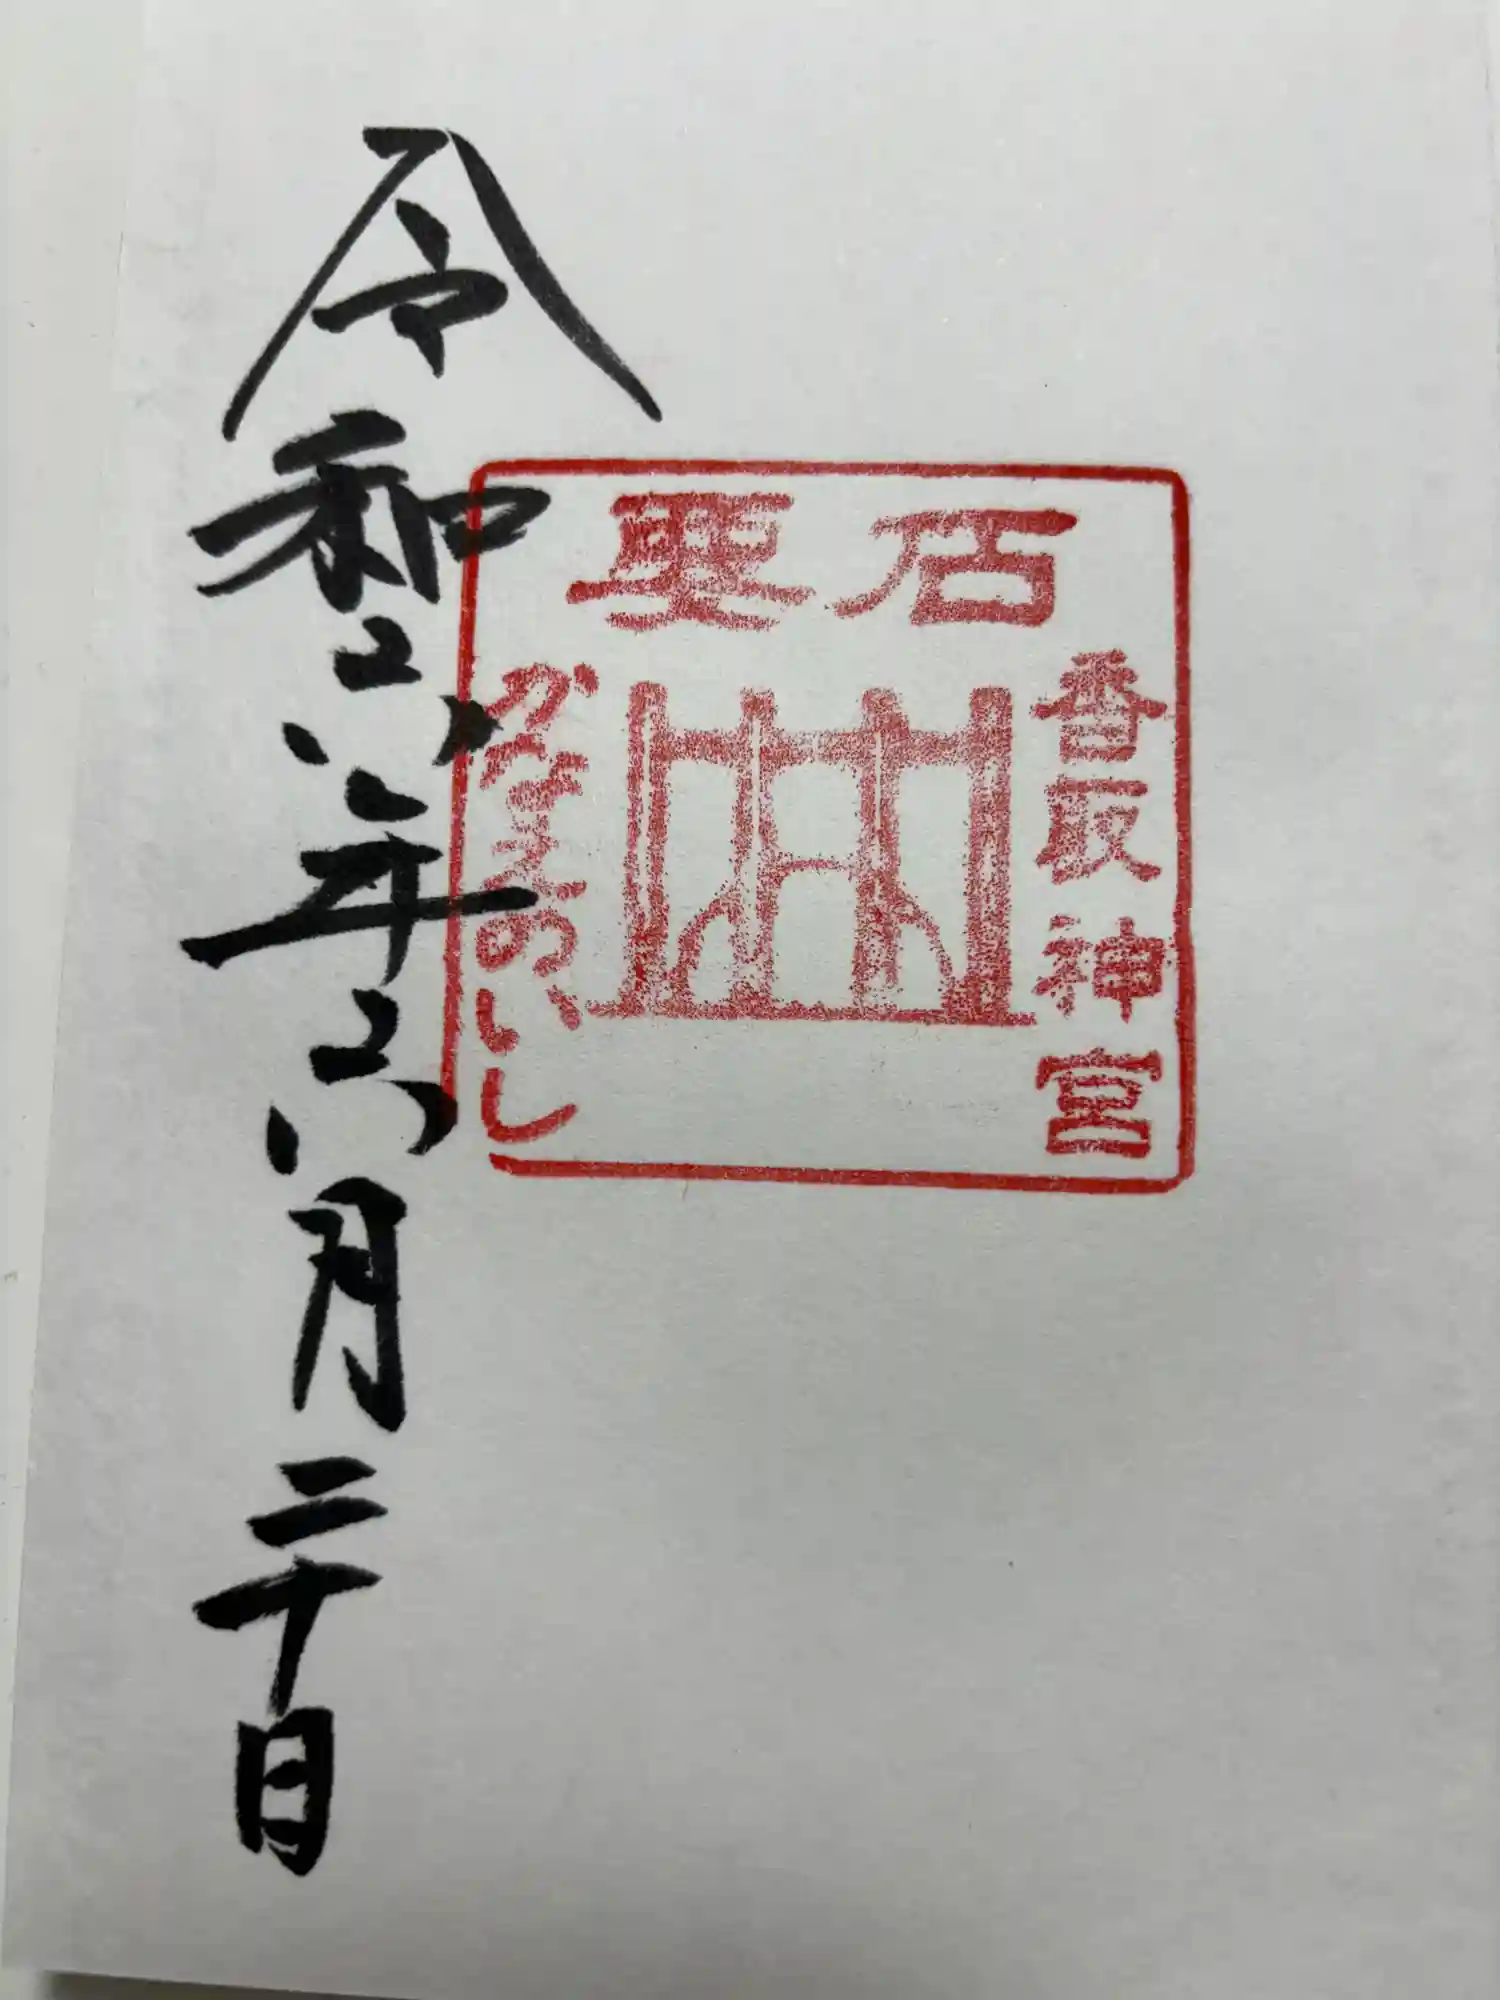 要石
香取神宮
かなめいし
令和六年六月二十日